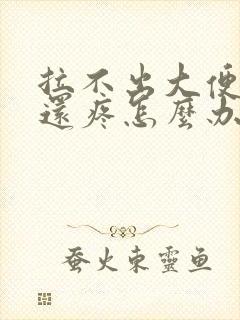 拉不出大便
還疼怎麼办
蚕火東靈鱼